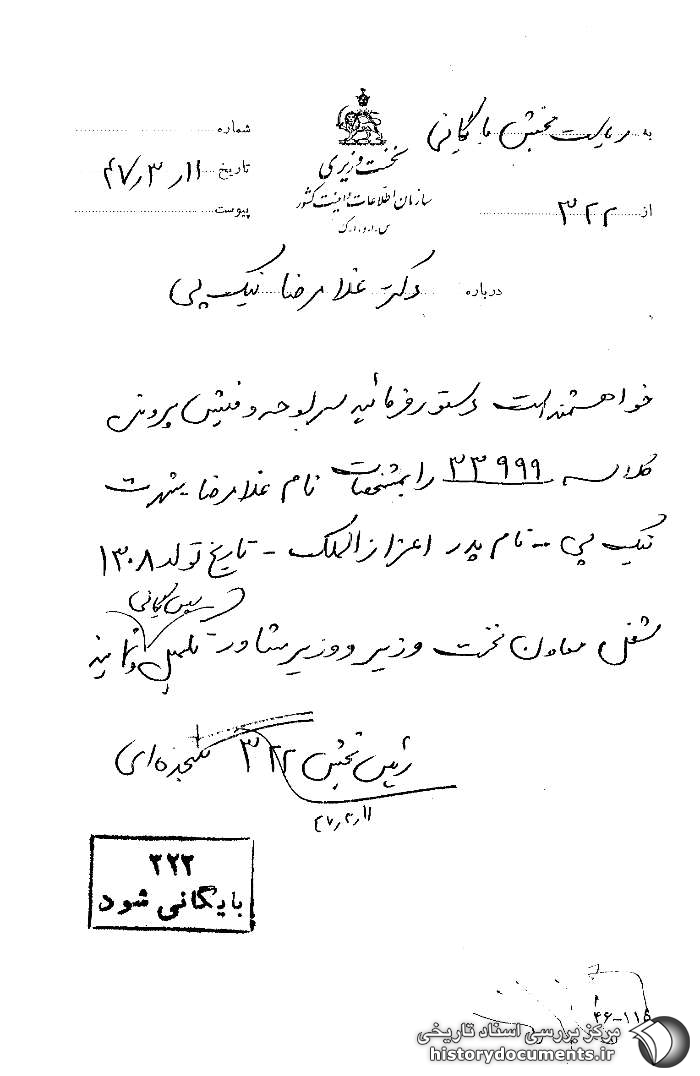 به ریاست بخش بایگانی
از ۳۲۲
نخست وزیری
سازمان اطلاعات و امنیت کشور
س.ا.و.ا.ک
شماره
تاریخ ۴۷٫۳٫۱۱
پیوست
درباره دکتر غلامرضا نیک پی
خواهشمند است دستور فرمائید سرلوحه و فیش پرونده
کلاسه ۳۳۹۹۹ را بمشخصات نام غلامرضا شهرت
نیک پی - نام پدر اعزاز الملک - تاریخ تولد ۱۳۰۸
شغل معاون نخست وزیر و وزیر مشاور تکمیل نمایند
رئیس بخش ۳۲۲
۴۷٫۳٫۱۱
۲۲۲
بایگانی شود
۴۶-۱۱۵
مرکز بررسی اسناد تاریخی
historydocuments.ir